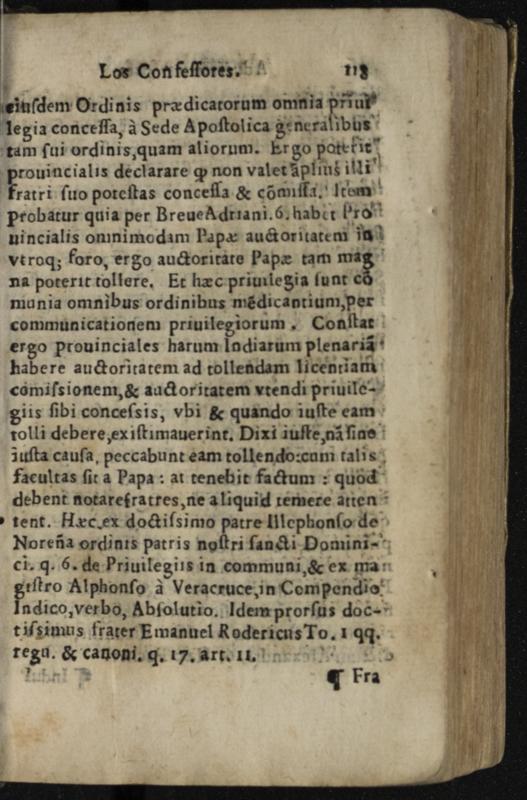 Los Confessores. 118
eiusdem Ordinis prædicatorum omnia priui
legia concessa, à Sede Apostolica generalibus
tam sui ordinis,quam aliorum. Ergo poterit
prouincialis declarare ꝙ non valet ãplius illi
fratri suo potestas concessa & cõmissa. Item
probatur quia per Breue Adriani.6. habet Pro
uincialis omnimodam Papæ auctoritatem in
vtroq; foro, ergo auctoritate Papæ tam mag
na poterit tollere. Et hæc priuilegia sunt cõ
munia omnibus ordinibus mẽdicantium,per
communicationem priuilegiorum. Constat
ergo prouinciales harum Indiarum plenariã
habere auctoritatem ad tollendam licentiam
comissionem,& auctoritatem vtendi priuile-
giis sibi concessis, vbi & quando iuste eam
tolli debere,existimauerint. Dixi iuste,nã sine
iusta causa, peccabunt eam tollendo:cum talis
facultas sit a Papa : at tenebit factum : quod
debent notare fratres,ne aliquid temere atten
tent. Hæc,ex doctissimo patre Illephonso de
Noreña ordinis patris nostri sancti Domini-
ci. q. 6. de Priuilegiis in communi,& ex ma
gistro Alphonso à Veracruce,in Compendio
Indico,verbo, Absolutio. Idem prorsus doc-
tissimus frater Emanuel Rodericus To. 1 qq.
regu. & canoni. q. 17. art. 11.
¶ Fra